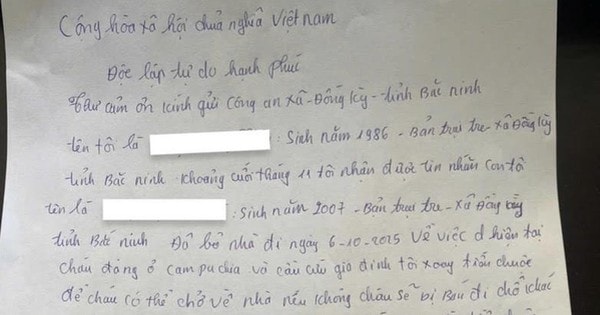 Cộng hòa xã hội chủ nghĩa Việt nam
Độc lập tự do hạnh Phúc
Thư cảm ơn kính gửi Công an xã - Đồng Kỳ - tỉnh Bắc ninh
tên tôi là : Sinh năm 1986 - Bản trại tre - xã Đồng Kỳ
tỉnh Bắc ninh khoảng cuối tháng 11 tôi nhận được tin nhắn con tô
tên là : Sinh năm 2007 - Bản trại tre - xã Đồng Kỳ
tỉnh Bắc ninh Đã bỏ nhà đi ngày 6-10-2025 về việc hiện tại
cháu đang ở campuchia và cầu cứu gia đình tôi xoay tiền chuộc
để cháu có thể chở về nhà nếu không cháu sẽ bị Bán đi chỗ khác